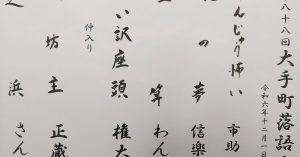 八十八回 大手町落語
令和六年十二月一日
んじゅう怖い 市助
の夢 信楽
算 わん
い訳座頭 権大
仲入り
坊主 正蔵
浜 さん